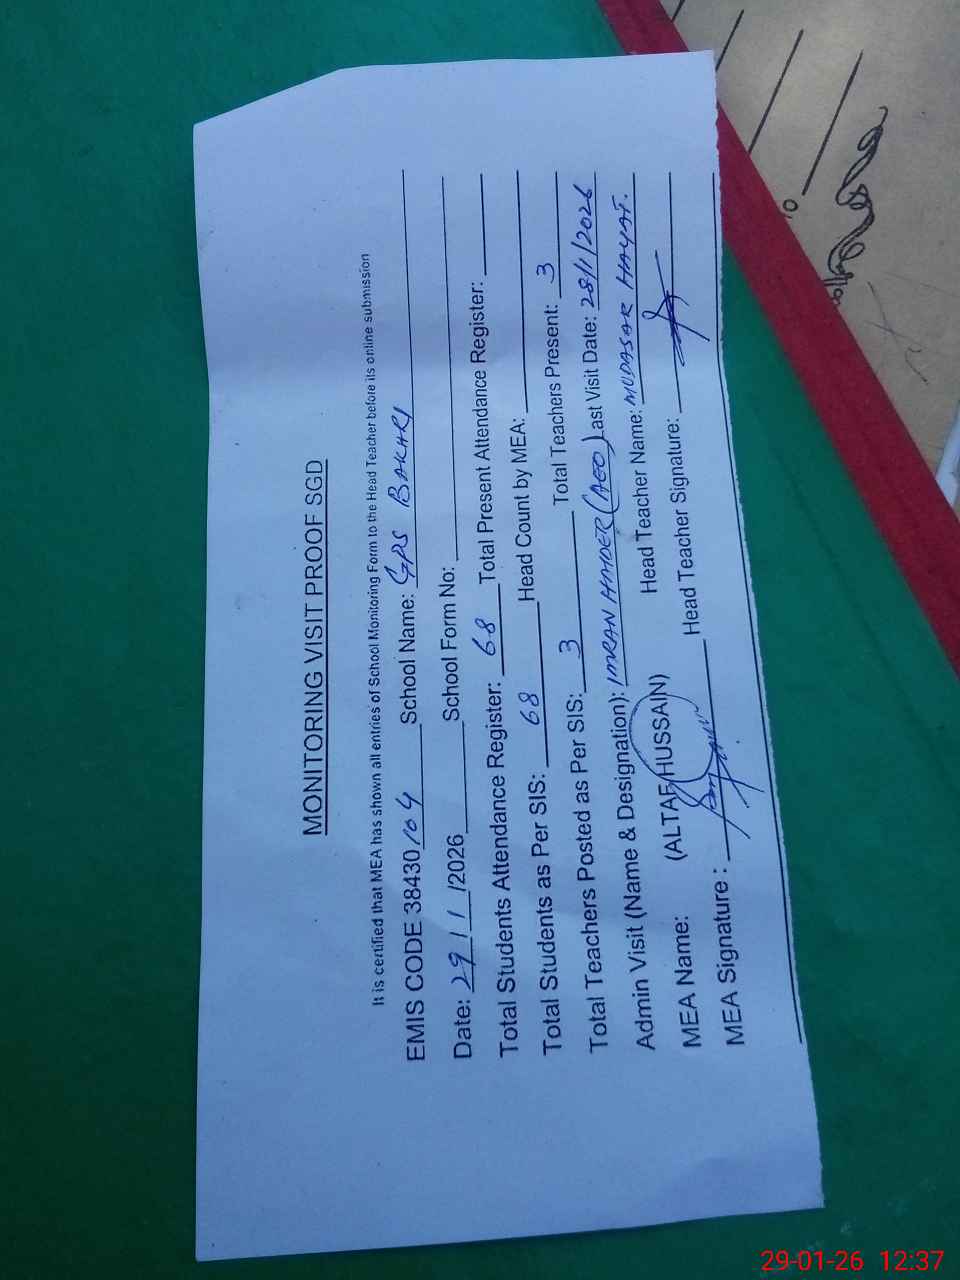 MONITORING VISIT PROOF SGD
It is certified that MEA has shown all entries of School Monitoring Form to the Head Teacher before its online submission
EMIS CODE 38430104 School Name: GPS BAKARI
Date: 29/1/2026 School Form No:
Total Students Attendance Register: 68 Total Present Attendance Register:
Total Students as Per SIS: 68 Head Count by MEA:
Total Teachers Posted as Per SIS: 3 Total Teachers Present: 3
Admin Visit (Name & Designation): IMRAN HAIDER (AEO) Last Visit Date: 28/1/2026
MEA Name: (ALTAF HUSSAIN) Head Teacher Name: MUDASAR HAYAT.
MEA Signature : Head Teacher Signature:
29-01-26 12:37